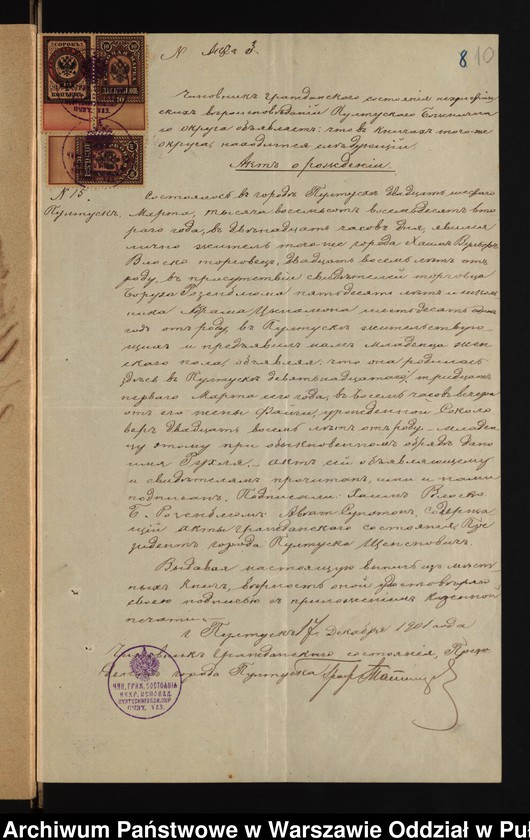 N
3.
8 10
СОРОКЪ
КОПѢЕКЪ
Чиновникъ Гражданскаго состоянія нехристіан
скихъ вѣроисповѣданій Пултускаго
го округа объявляетъ: что въ книгахъ того же
округа находится слѣдующій
Актъ о рожденіи.
N 15.
Пултускъ.
Состоялось въ городѣ Пултускѣ двадцать шестаго
Марта, тысяча восемьсотъ восемьдесятъ вто
рого года, въ двѣнадцать часовъ дня, явился
лично житель того же города Хаимъ
Влоско торговецъ, двадцати восьми лѣтъ отъ
роду, въ присутствіи свидѣтелей торговца
Боруха пятьдесятъ лѣтъ и школь
ника Абрама шестьдесятъ одинъ
годъ отъ роду, въ Пултускѣ жительствую
щихъ и предъявилъ намъ младенца жен
скаго пола, объявляя: что она родилась
здѣсь въ Пултускѣ девятнадцатаго / тридцать
перваго Марта сего года, въ восемь часовъ вечера
отъ его жены Файги, урожденной Соколо
веръ двадцать восемь лѣтъ отъ роду. – Младен
цу этому при обыкновенномъ обрядѣ дано
имя Рухля. – Актъ сей объявляющему
и свидѣтелямъ прочитанъ, ими и нами
подписанъ. Подписали: Хаимъ Влоско
Б. Розенблюмъ содержа
щій акты гражданскаго состоянія, Пре
зидентъ города Пултуска
Выдавая настоящую выпись изъ мѣст
ныхъ книгъ, вѣрность оной удостовѣряю
своею подписью съ приложеніемъ казенной
печати. –
г. Пултускъ 17 Декабря 1901 года
Чиновникъ Гражданскаго состоянія, Прези
дентъ города Пултуска
ЧИН. ГРАЖ. СОСТОЯНІЯ
НЕХР. ИСПОВѢД.
Archiwum Państwowe w Warszawie Oddział w Pu